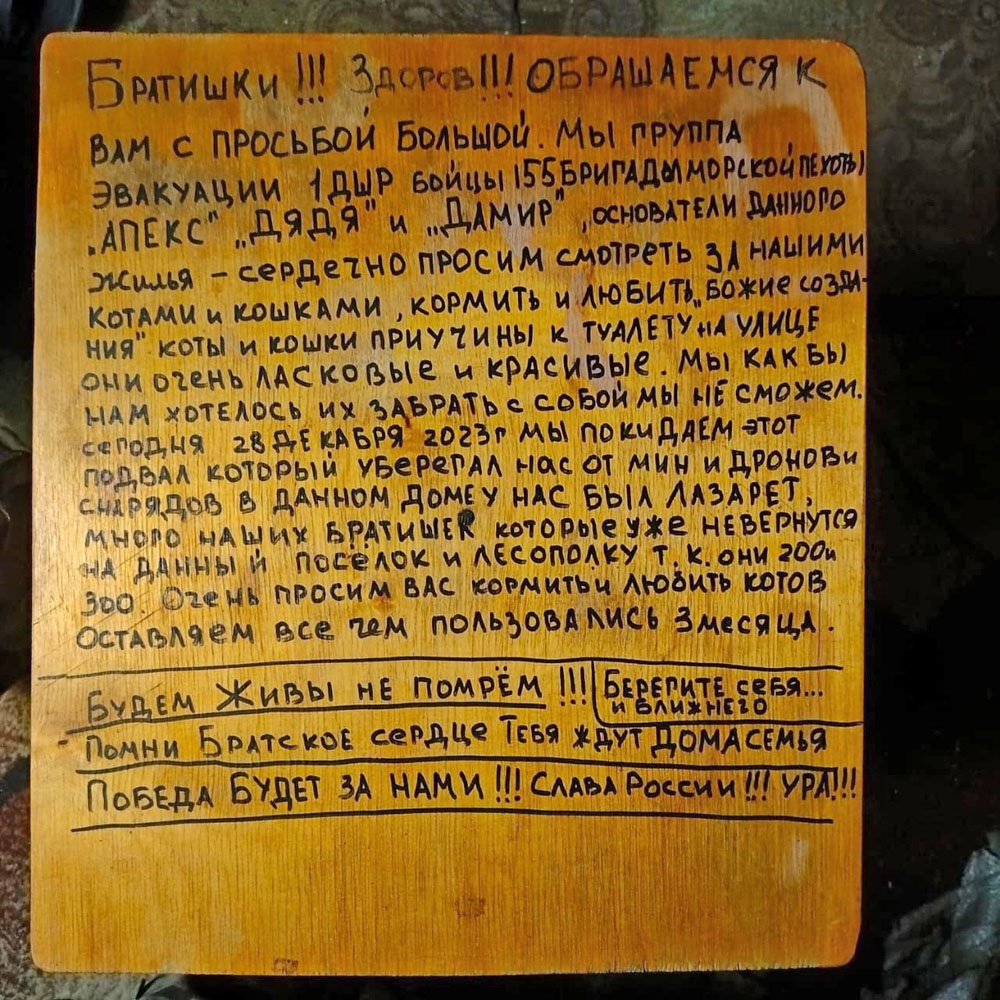 Братишки!!! Здоров!!! Обращаемся к
вам с просьбой большой. Мы группа
эвакуации 1ДШР бойцы 155 бригады морской пехоты)
„Апекс" „Дядя" и „Дамир", основатели данного
жилья – сердечно просим смотреть за нашими
котами и кошками, кормить и любить „Божие созда-
ния" коты и кошки приучины к туалету на улице
они очень ласковые и красивые. Мы как бы
нам хотелось их забрать с собой мы не сможем.
сегодня 28 декабря 2023г мы покидаем этот
подвал который уберегал нас от мин и дронов и
снарядов в данном доме у нас был лазарет,
много наших братишек которые уже невернутся
на данный посёлок и лесополку т.к. они 200и
300. Очень просим вас кормить и любить котов
Оставляем все чем пользовались 3 месяца.
Будем живы не помрём!!! Берегите себя...
и ближнего
- Помни Братское сердце Тебя ждут дома семья
Победа будет за нами!!! Слава России!!! УРА!!!